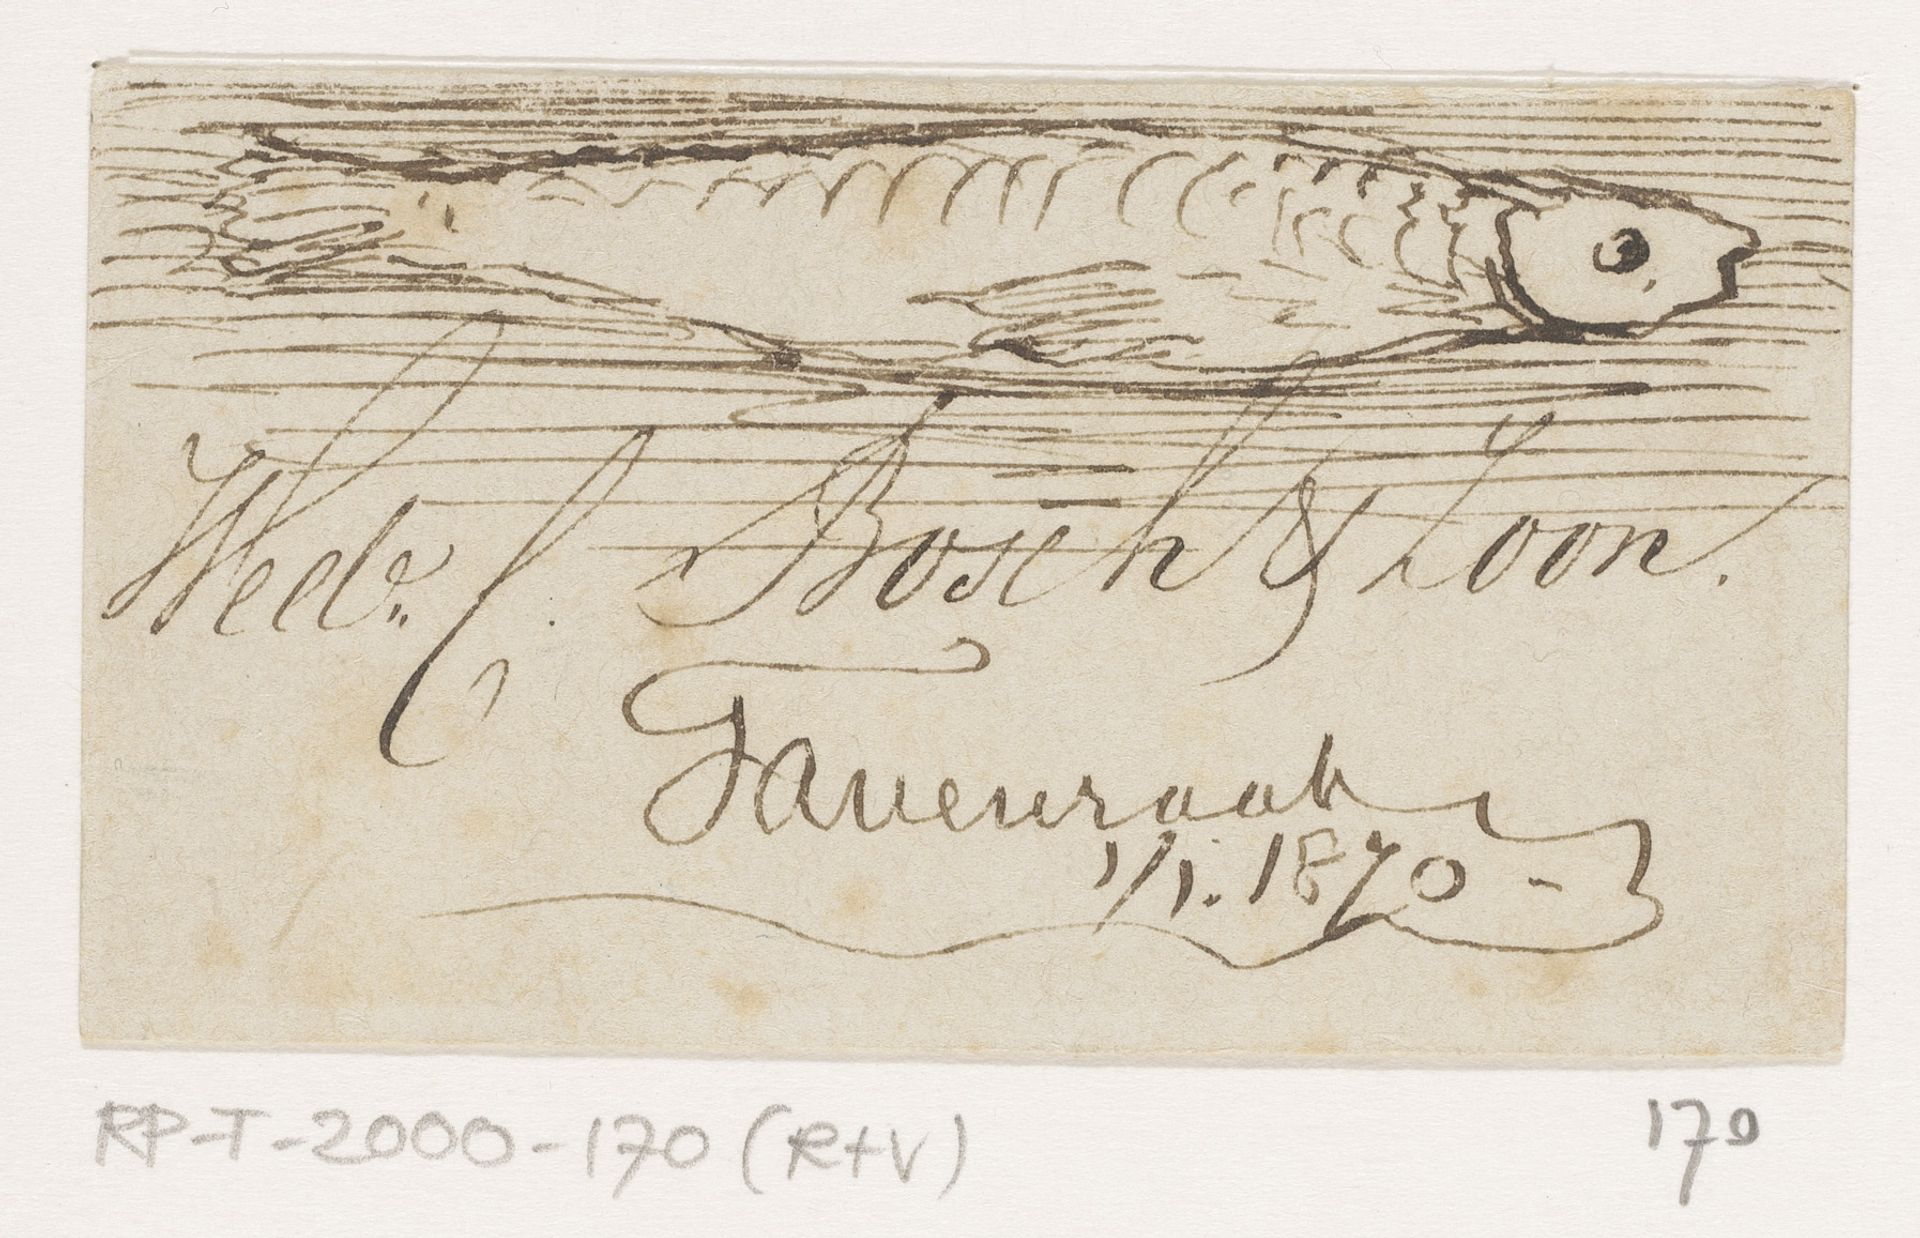 Wed.e C. Bosch & Zoon.
Tavenraat
1/1. 1870 -
RP-T-2000-170 (R+V)
170